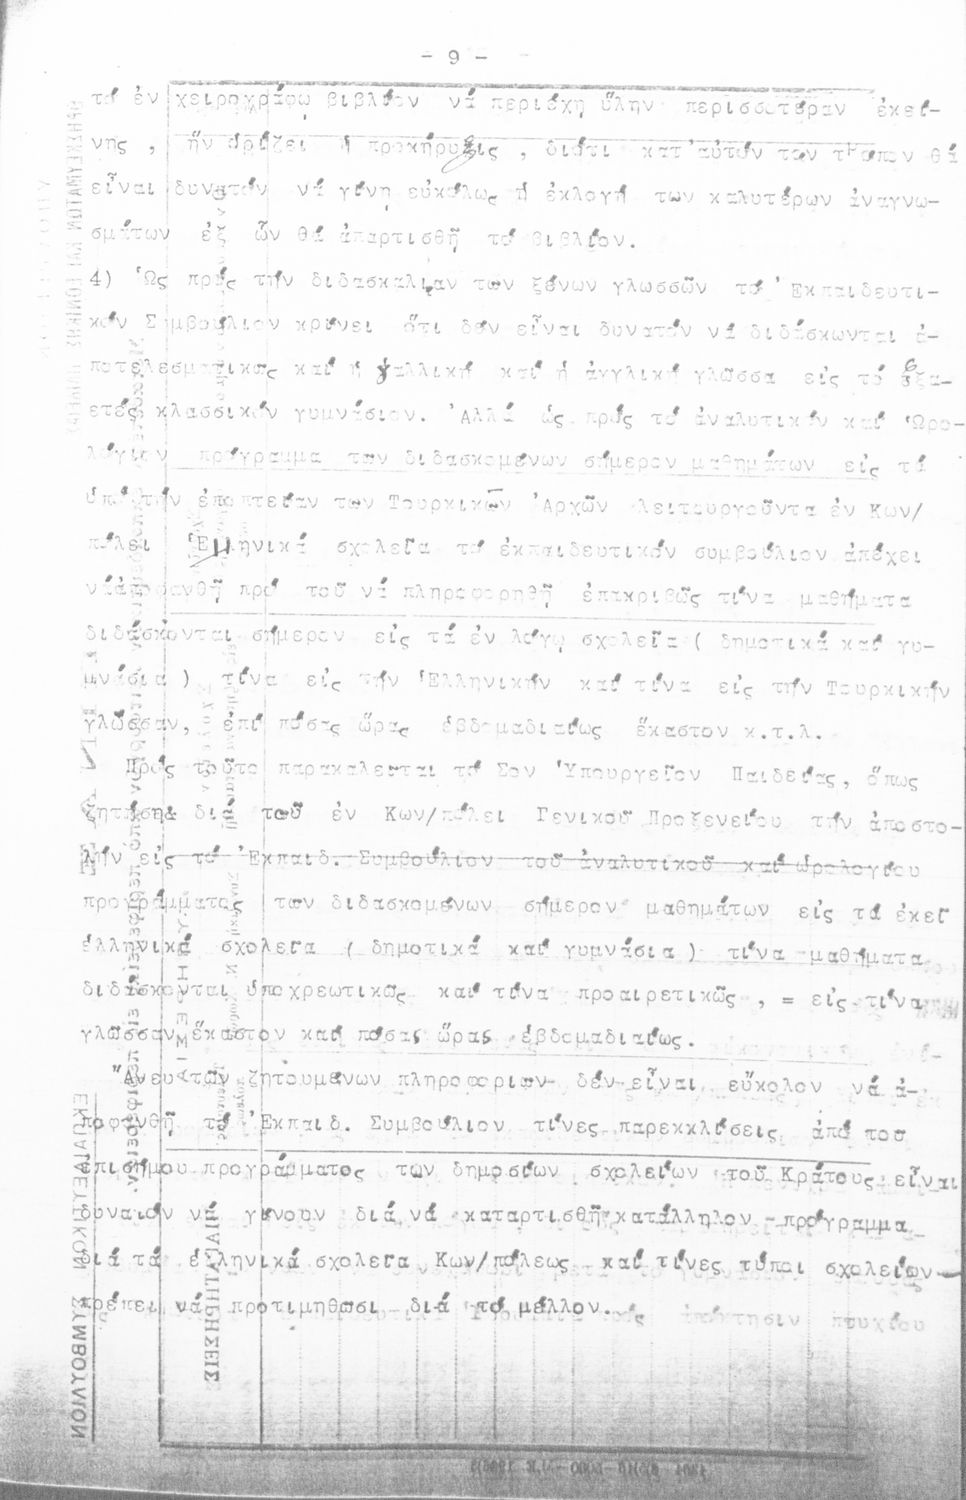 - 9 -
τό ἐν χειρογράφῳ βιβλίον νά περιέχῃ ὕλην περισσοτέραν ἐκεί-
νης , ἥν ὁρίζει ἡ προκήρυξις , διότι κατ'αὐτόν τον τρόπον θά
εἶναι δυνατόν νά γίνῃ εὐκόλως ἡ ἐκλογή των καλυτέρων ἀναγνω-
σμάτων ἐξ ὧν θά ἀπαρτισθῇ τό βιβλίον.
4) Ὡς πρός τήν διδασκαλίαν των ξένων γλωσσῶν τό Ἐκπαιδευτι-
κόν Συμβούλιον κρίνει ὅτι δέν εἶναι δυνατόν νά διδάσκωνται ἀ-
ποτελεσματικως καί ἡ γαλλική καί ἡ ἀγγλική γλῶσσα εἰς τό ἑξα-
ετές κλασσικόν γυμνάσιον. Ἀλλά ὡς πρός τό ἀναλυτικόν καί Ὡρο-
λόγιον πρόγραμμα των διδασκομένων σήμερον μαθημάτων εἰς τά
ὑπό τήν ἐποπτείαν των Τουρκικῶν Ἀρχῶν λειτουργοῦντα ἐν Κων/
πόλει Ἑλληνικά σχολεῖα τό ἐκπαιδευτικόν συμβούλιον ἀπέχει
νά ἀποφανθῇ πρό τοῦ νά πληροφορηθῇ ἐπακριβῶς τίνα μαθήματα
διδάσκονται σήμερον εἰς τά ἐν λόγῳ σχολεῖα ( δημοτικά καί γυ-
μνάσια ) τίνα εἰς τήν Ἑλληνικήν καί τίνα εἰς τήν Τουρκικήν
γλῶσσαν, ἐπί πόσας ὥρας ἑβδομαδιαίως ἕκαστον κ.τ.λ.
Πρός τοῦτο παρακαλεῖται τό Σον Ὑπουργεῖον Παιδείας, ὅπως
ζητήσῃ διά τοῦ ἐν Κων/πόλει Γενικοῦ Προξενείου τήν ἀποστο-
λήν εἰς τό Ἐκπαιδ. Συμβούλιον τοῦ ἀναλυτικοῦ καί ὡρολογίου
προγράμματος των διδασκομένων σήμερον μαθημάτων εἰς τά ἐκεῖ
ἑλληνικά σχολεῖα ( δημοτικά καί γυμνάσια ) τίνα μαθήματα
διδάσκονται ὑποχρεωτικῶς καί τίνα προαιρετικῶς , = εἰς τίνα
γλῶσσαν ἕκαστον καί πόσας ὥρας ἑβδομαδιαίως.
Ἄνευ τῶν ζητουμένων πληροφοριων δέν εἶναι εὔκολον νά ἀ-
ποφανθῇ τό Ἐκπαιδ. Συμβούλιον τίνες παρεκκλίσεις ἀπό του
ἐπισήμου προγράμματος των δημοσίων σχολείων τοῦ Κράτους εἶναι
δυνατόν νά γίνουν διά νά καταρτισθῇ κατάλληλον πρόγραμμα
διά τά ἑλληνικά σχολεῖα Κων/πόλεως καί τίνες τύποι σχολείων
πρέπει νά προτιμηθῶσι διά τό μέλλον.